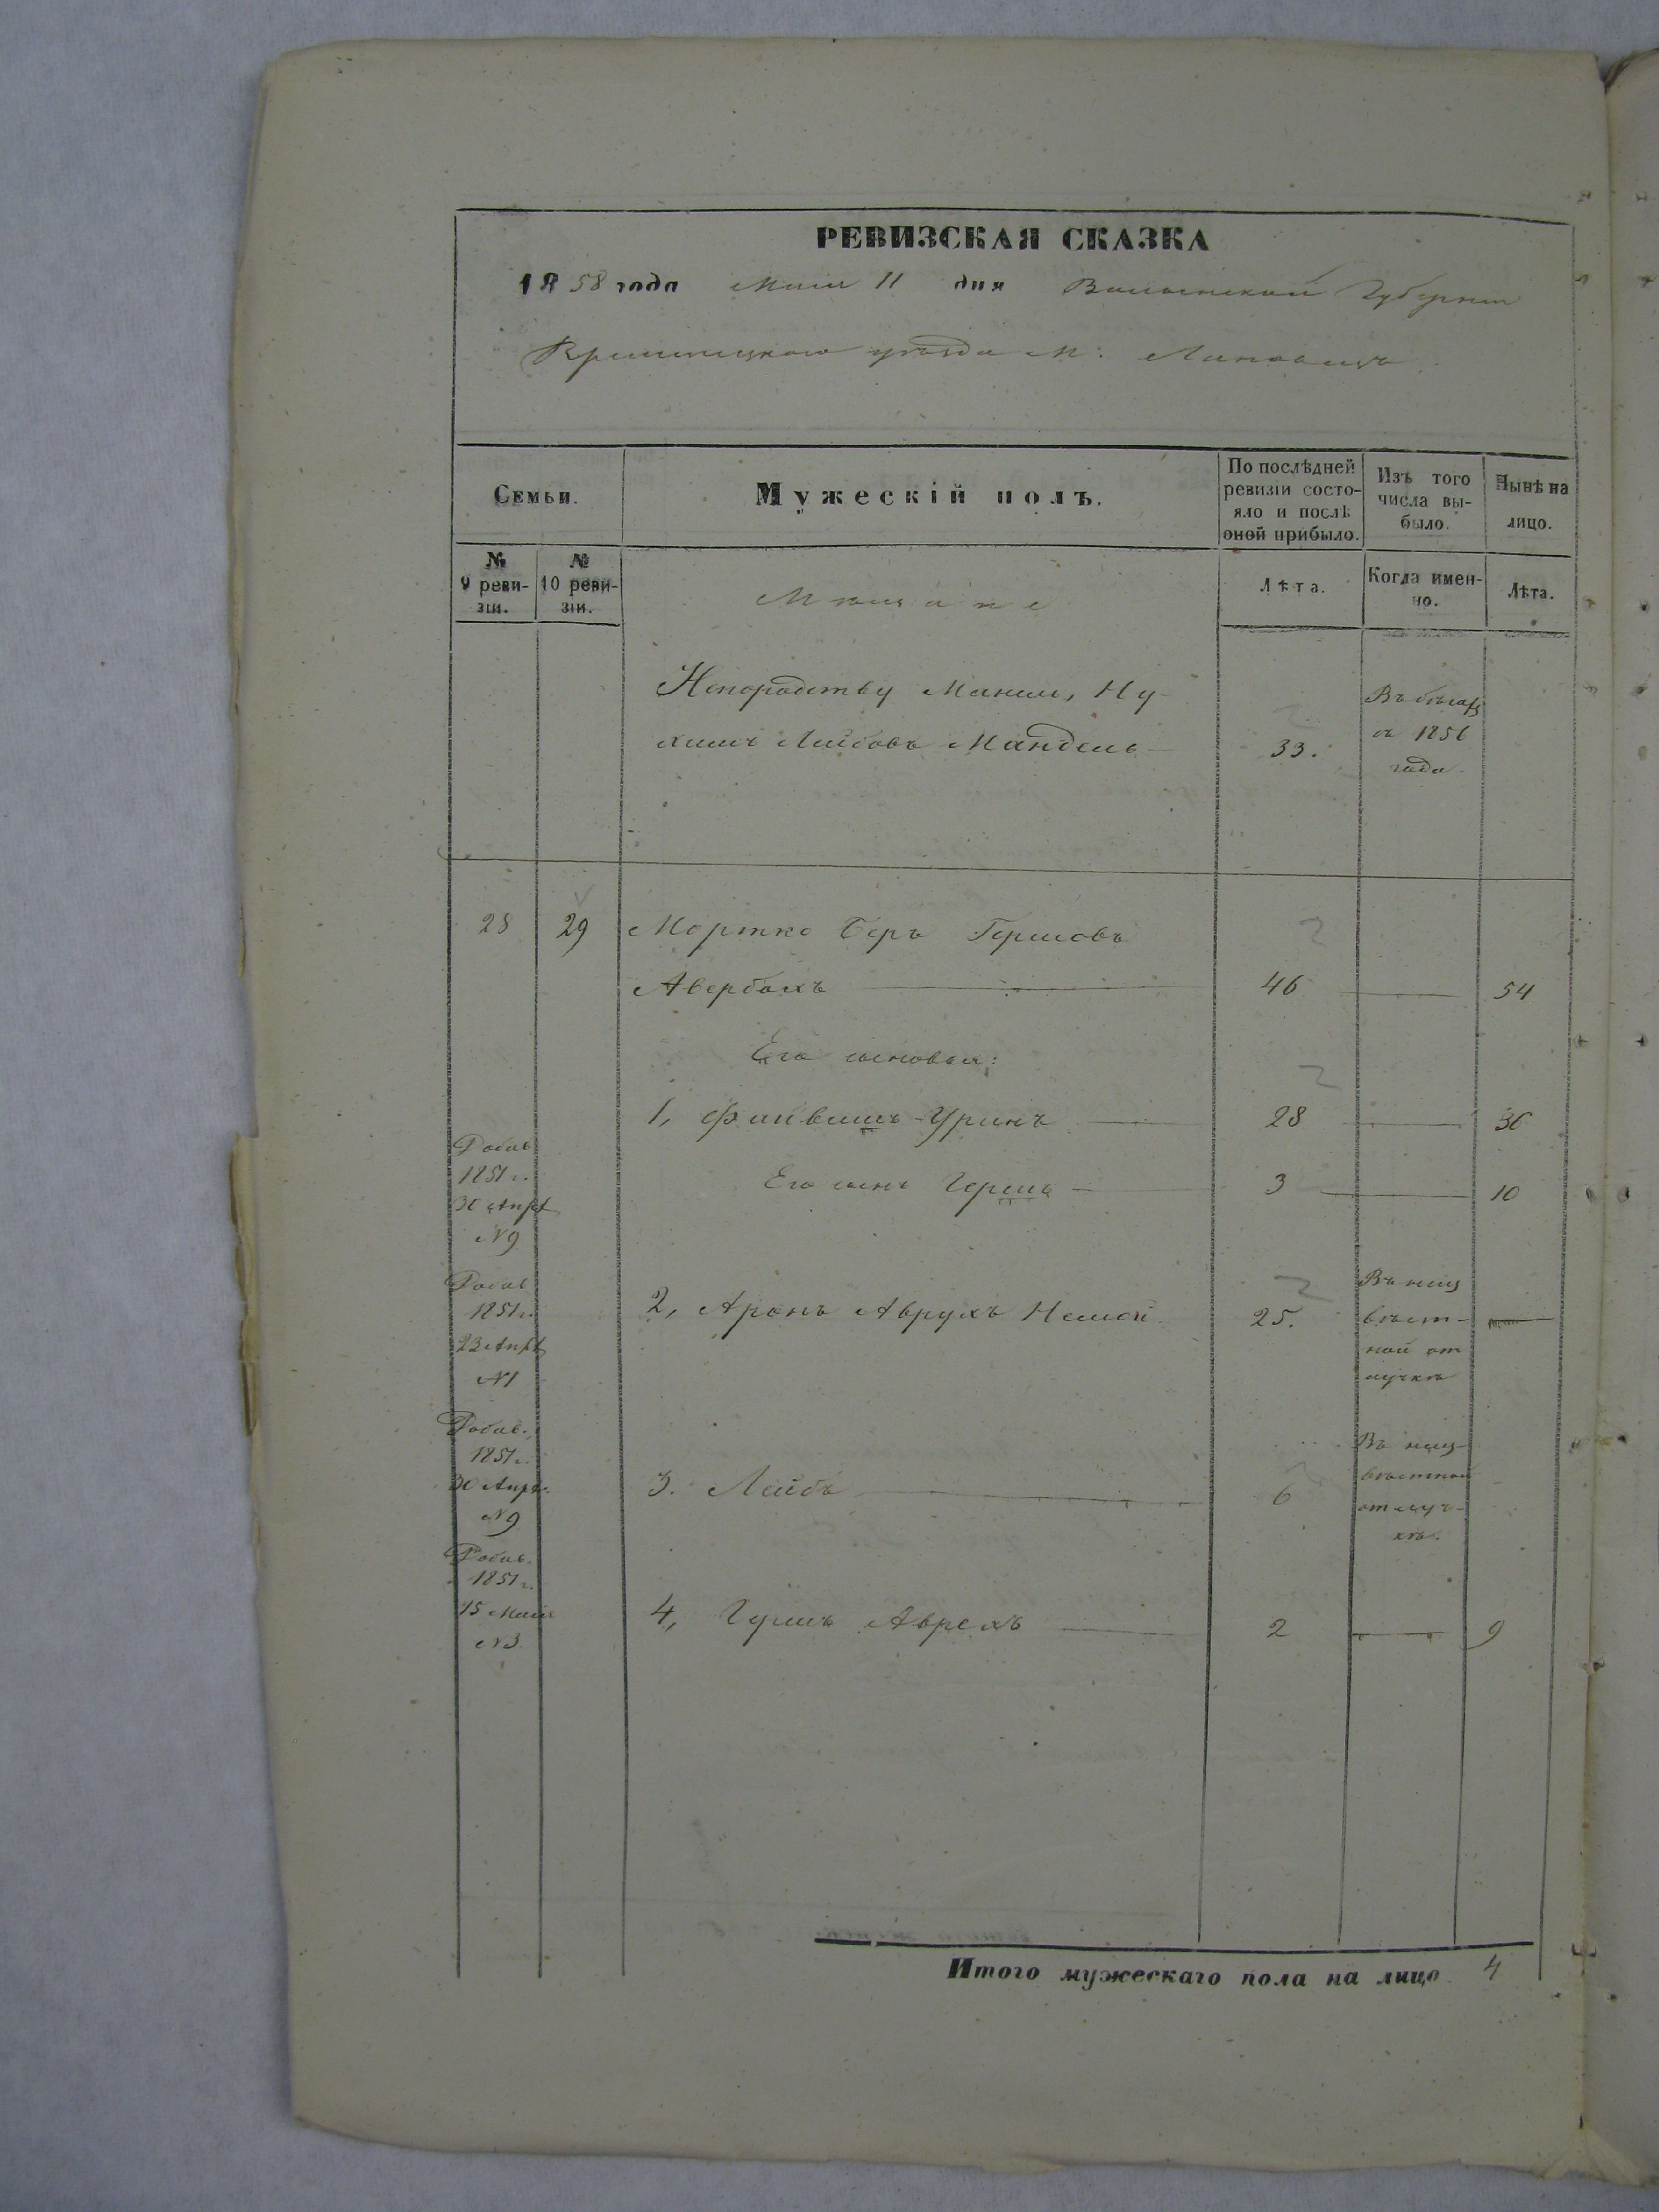 РЕВИЗСКАЯ СКАЗКА
1858 года Маія 11 дня Волынской Губерніи
Кременецкого уѣзда М.
Семьи.
Мужескій полъ.
По послѣдней ревизіи состо-
яло и послѣ
оной прибыло.
Изъ того
числа вы-
было.
Нынѣ на
лицо.
№
9 реви-
зіи.
№
10 реви-
зіи.
Мѣщане
Лѣта.
Когда имен-
но.
Лѣта.
Ну-
химъ Лейбовъ Мандель
33.
Въ бѣгахъ
съ 1856
года.
28 29 Мортко Беръ Гершовъ
Авербахъ 46 54
Его сыновья:
1, Файвишъ-Уринъ 28 36
Добав.
1851 г.
30 Апрѣ
N 9
Его сынъ Гершъ 3 10
Добав
1851 г.
23 Апрѣ
N 1
2, Аронъ Аврухъ 25.
Въ неиз
вѣст-
ной от
лучкѣ
Добав.
1851 г.
30 Апрѣ.
N 9
3. Лейбъ 6
Въ неиз-
вѣстной
отлуч-
кѣ.
Добав.
1851 г.
15 Маія
N 3
4, Аврехъ 2 9
Итого мужескаго пола на лицо 4